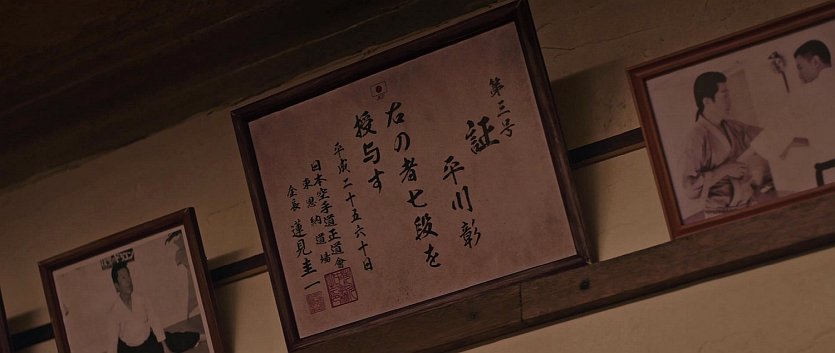 第三号
証
平川彰
右の者七段を
授与す
平成二十五六十日
日本空手道正道會
東恩納道場
会長 蓮見圭一